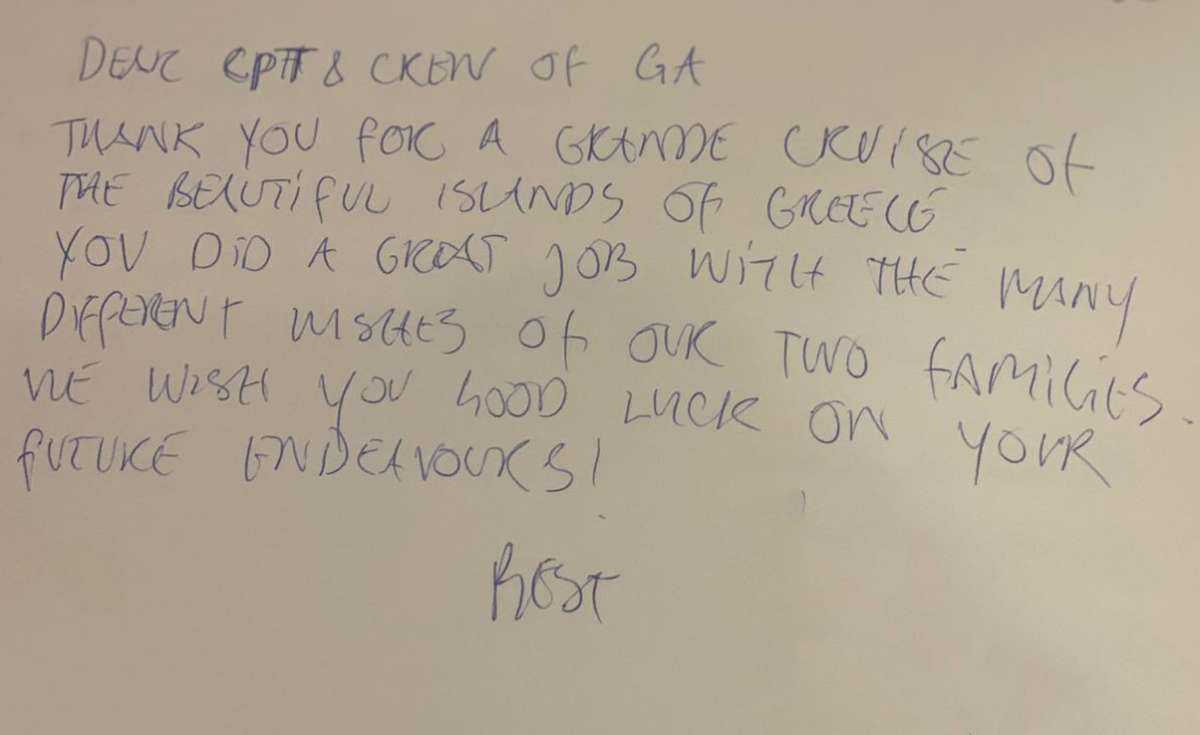 DEAR CPT & CREW OF GA
THANK YOU FOR A GRANDE CRUISE OF
THE BEAUTIFUL ISLANDS OF GREECE
YOU DID A GREAT JOB WITH THE MANY
DIFFERENT WISHES OF OUR TWO FAMILIES.
WE WISH YOU GOOD LUCK ON YOUR
FUTURE ENDEAVOURS!
BEST